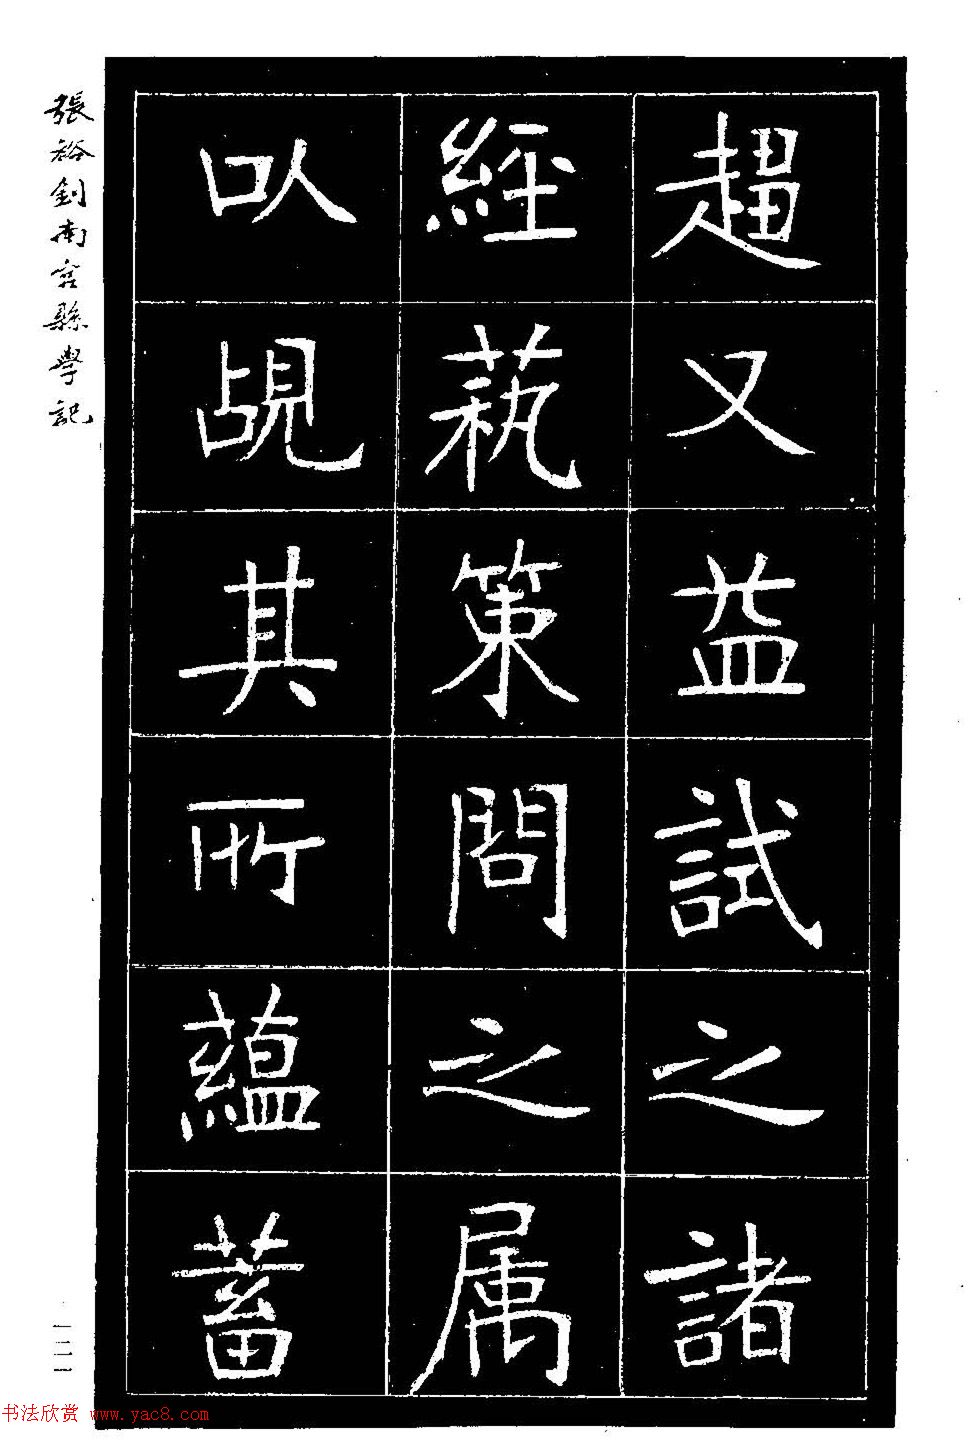 張裕釗南宮縣學記
趨又益試之諸
經蓺策問之属
以覘其所蘊蓄
书法欣赏 www.yac8.com